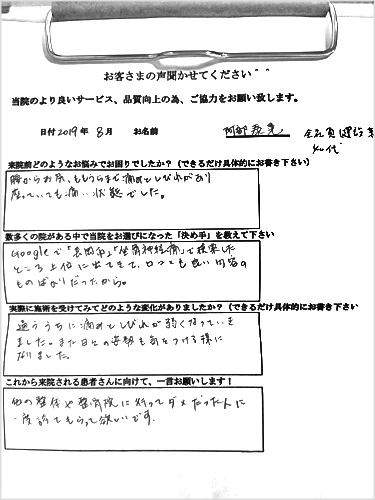 お客さまの声聞かせてください^^
当院のより良いサービス、品質向上の為、ご協力をお願い致します。
日付 2019年 8月 お名前 阿部 会社員
40代
来院前どのようなお悩みでお困りでしたか？(できるだけ具体的にお書き下さい)
腰からお尻、ももうらまで痛みとしびれがあり
座っていても痛い状態でした。
数多くの院がある中で当院をお選びになった「決め手」を教えて下さい
Googleで「長岡市」「坐骨神経痛」で検索した
ところ上位に出てきて、口コミも良い内容の
ものばかりだったから。
実際に施術を受けてみてどのような変化がありましたか？(できるだけ具体的にお書き下さい
通ううちに痛みとしびれが弱くなっていき
ました。また日々の姿勢も気をつける様に
なりました。
これから来院される患者さんに向けて、一言お願いします！
他の整体や整骨院に行ってダメだった人に
一度診てもらって欲しいです。